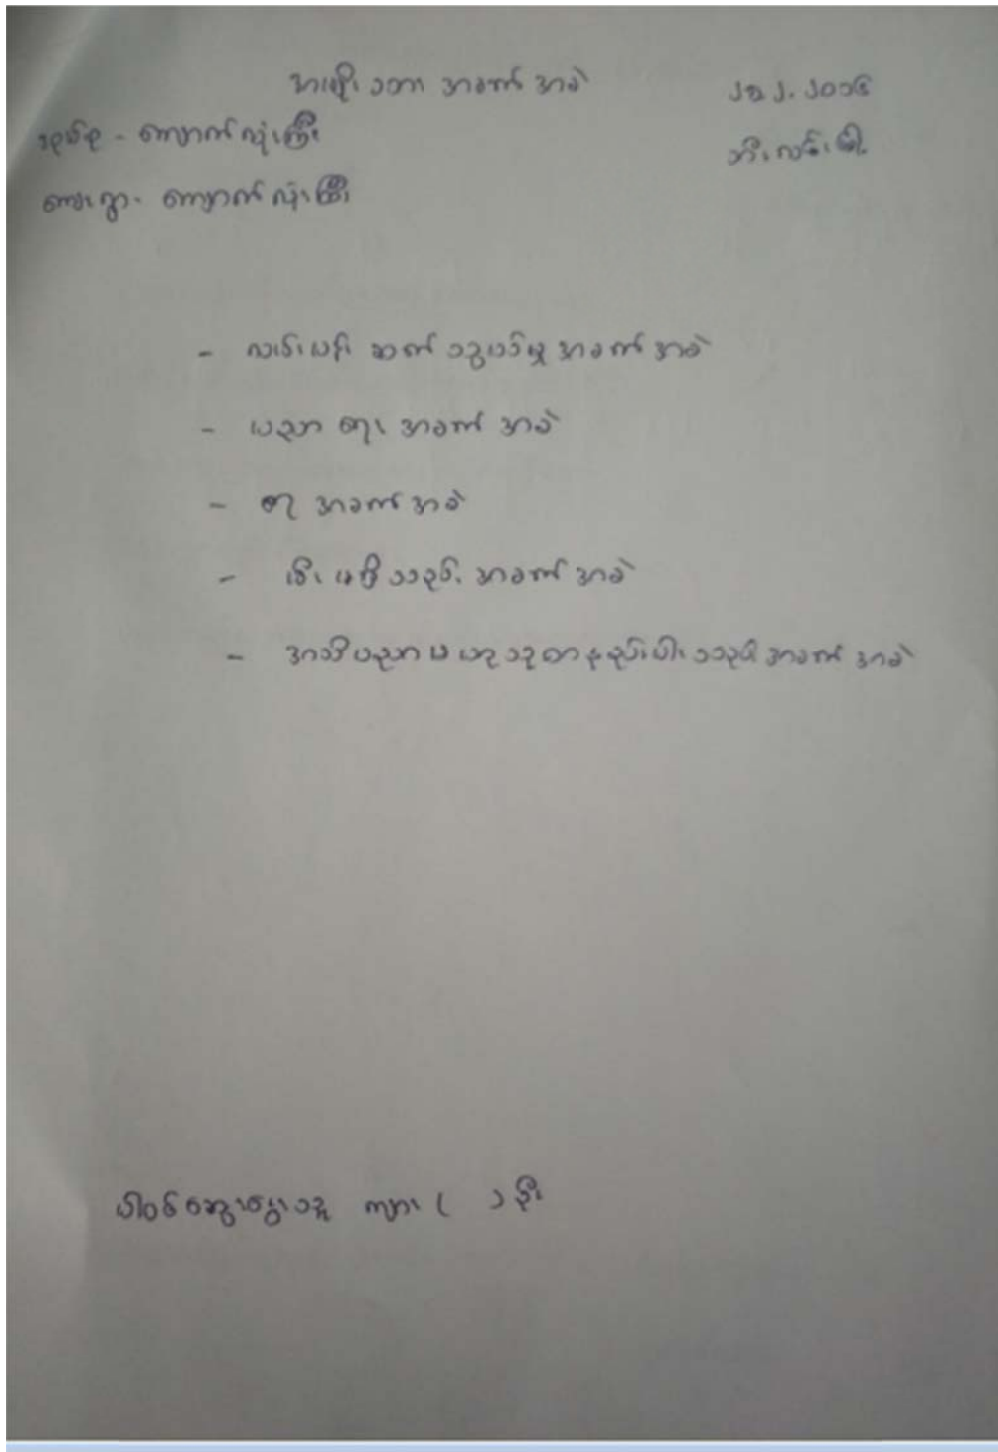 အမျိုးသား အခက် အခဲ
၂၅.၂.၂၀၁၆
အုပ်စု - ကျောက်လုံးကြီး
ဘီးလင်းမြို့
ကျေးရွာ - ကျောက်လုံးကြီး
- လမ်းပန်း ဆက်သွယ်မှု အခက် အခဲ
- ပညာ ရေး အခက် အခဲ
- ရေ အခက် အခဲ
- မီး မရှိသည့် အခက် အခဲ
- အသိပညာ ဗဟုသုတ နည်းပါးသည့် အခက် အခဲ
ပါဝင်ဆွေးနွေးသူ ကျား ( ) ဦး